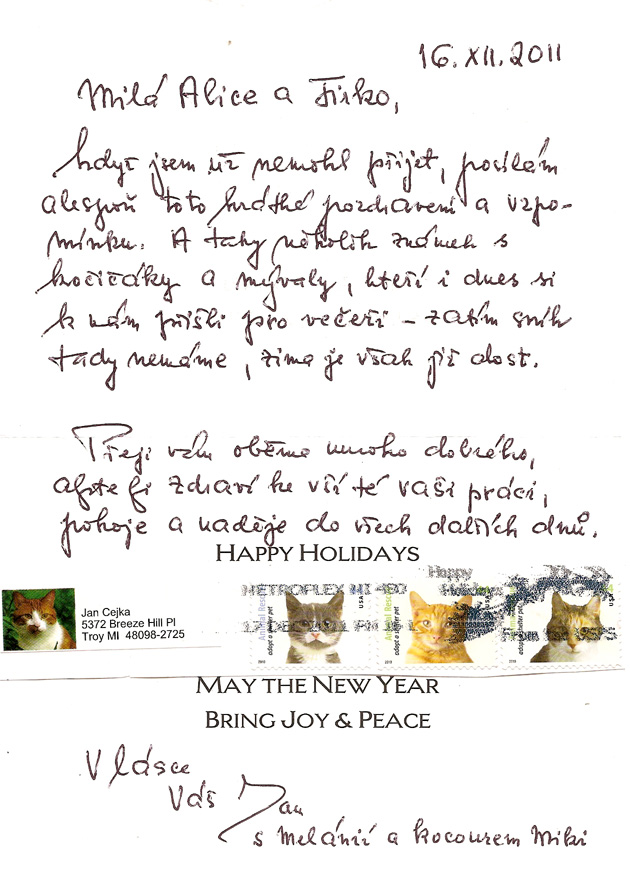 16. XII. 2011
Milá Alice a Jirko,
když jsem už nemohl přijet, posílám
alespoň toto krátké pozdravení a vzpo-
mínku. A taky několik známek s
kočičáky a mývaly, kteří i dnes si
k nám přišli pro večeři – zatím sníh
tady nemáme, zima je však již dost.
Přeji vám oběma mnoho dobrého,
abyste si zdraví ke vší té vaší práci,
pokoje a naděje do všech dalších dnů.
HAPPY HOLIDAYS
Jan Cejka
5372 Breeze Hill Pl
Troy MI 48098-2725
METROPLEX MI 480
Happy
Holidays
Animal Rescue
adopt a shelter pet
USA
2010
adopt a shelter pet
2010
adopt a shelter pet
2010
MAY THE NEW YEAR
BRING JOY & PEACE
V lásce
Váš Jan
s Melánií a kocourem Miki